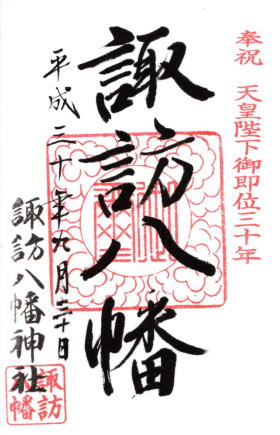 奉祝 天皇陛下御即位三十年
諏訪八幡
平成三十年九月三十日
諏訪八幡神社
諏訪
八幡